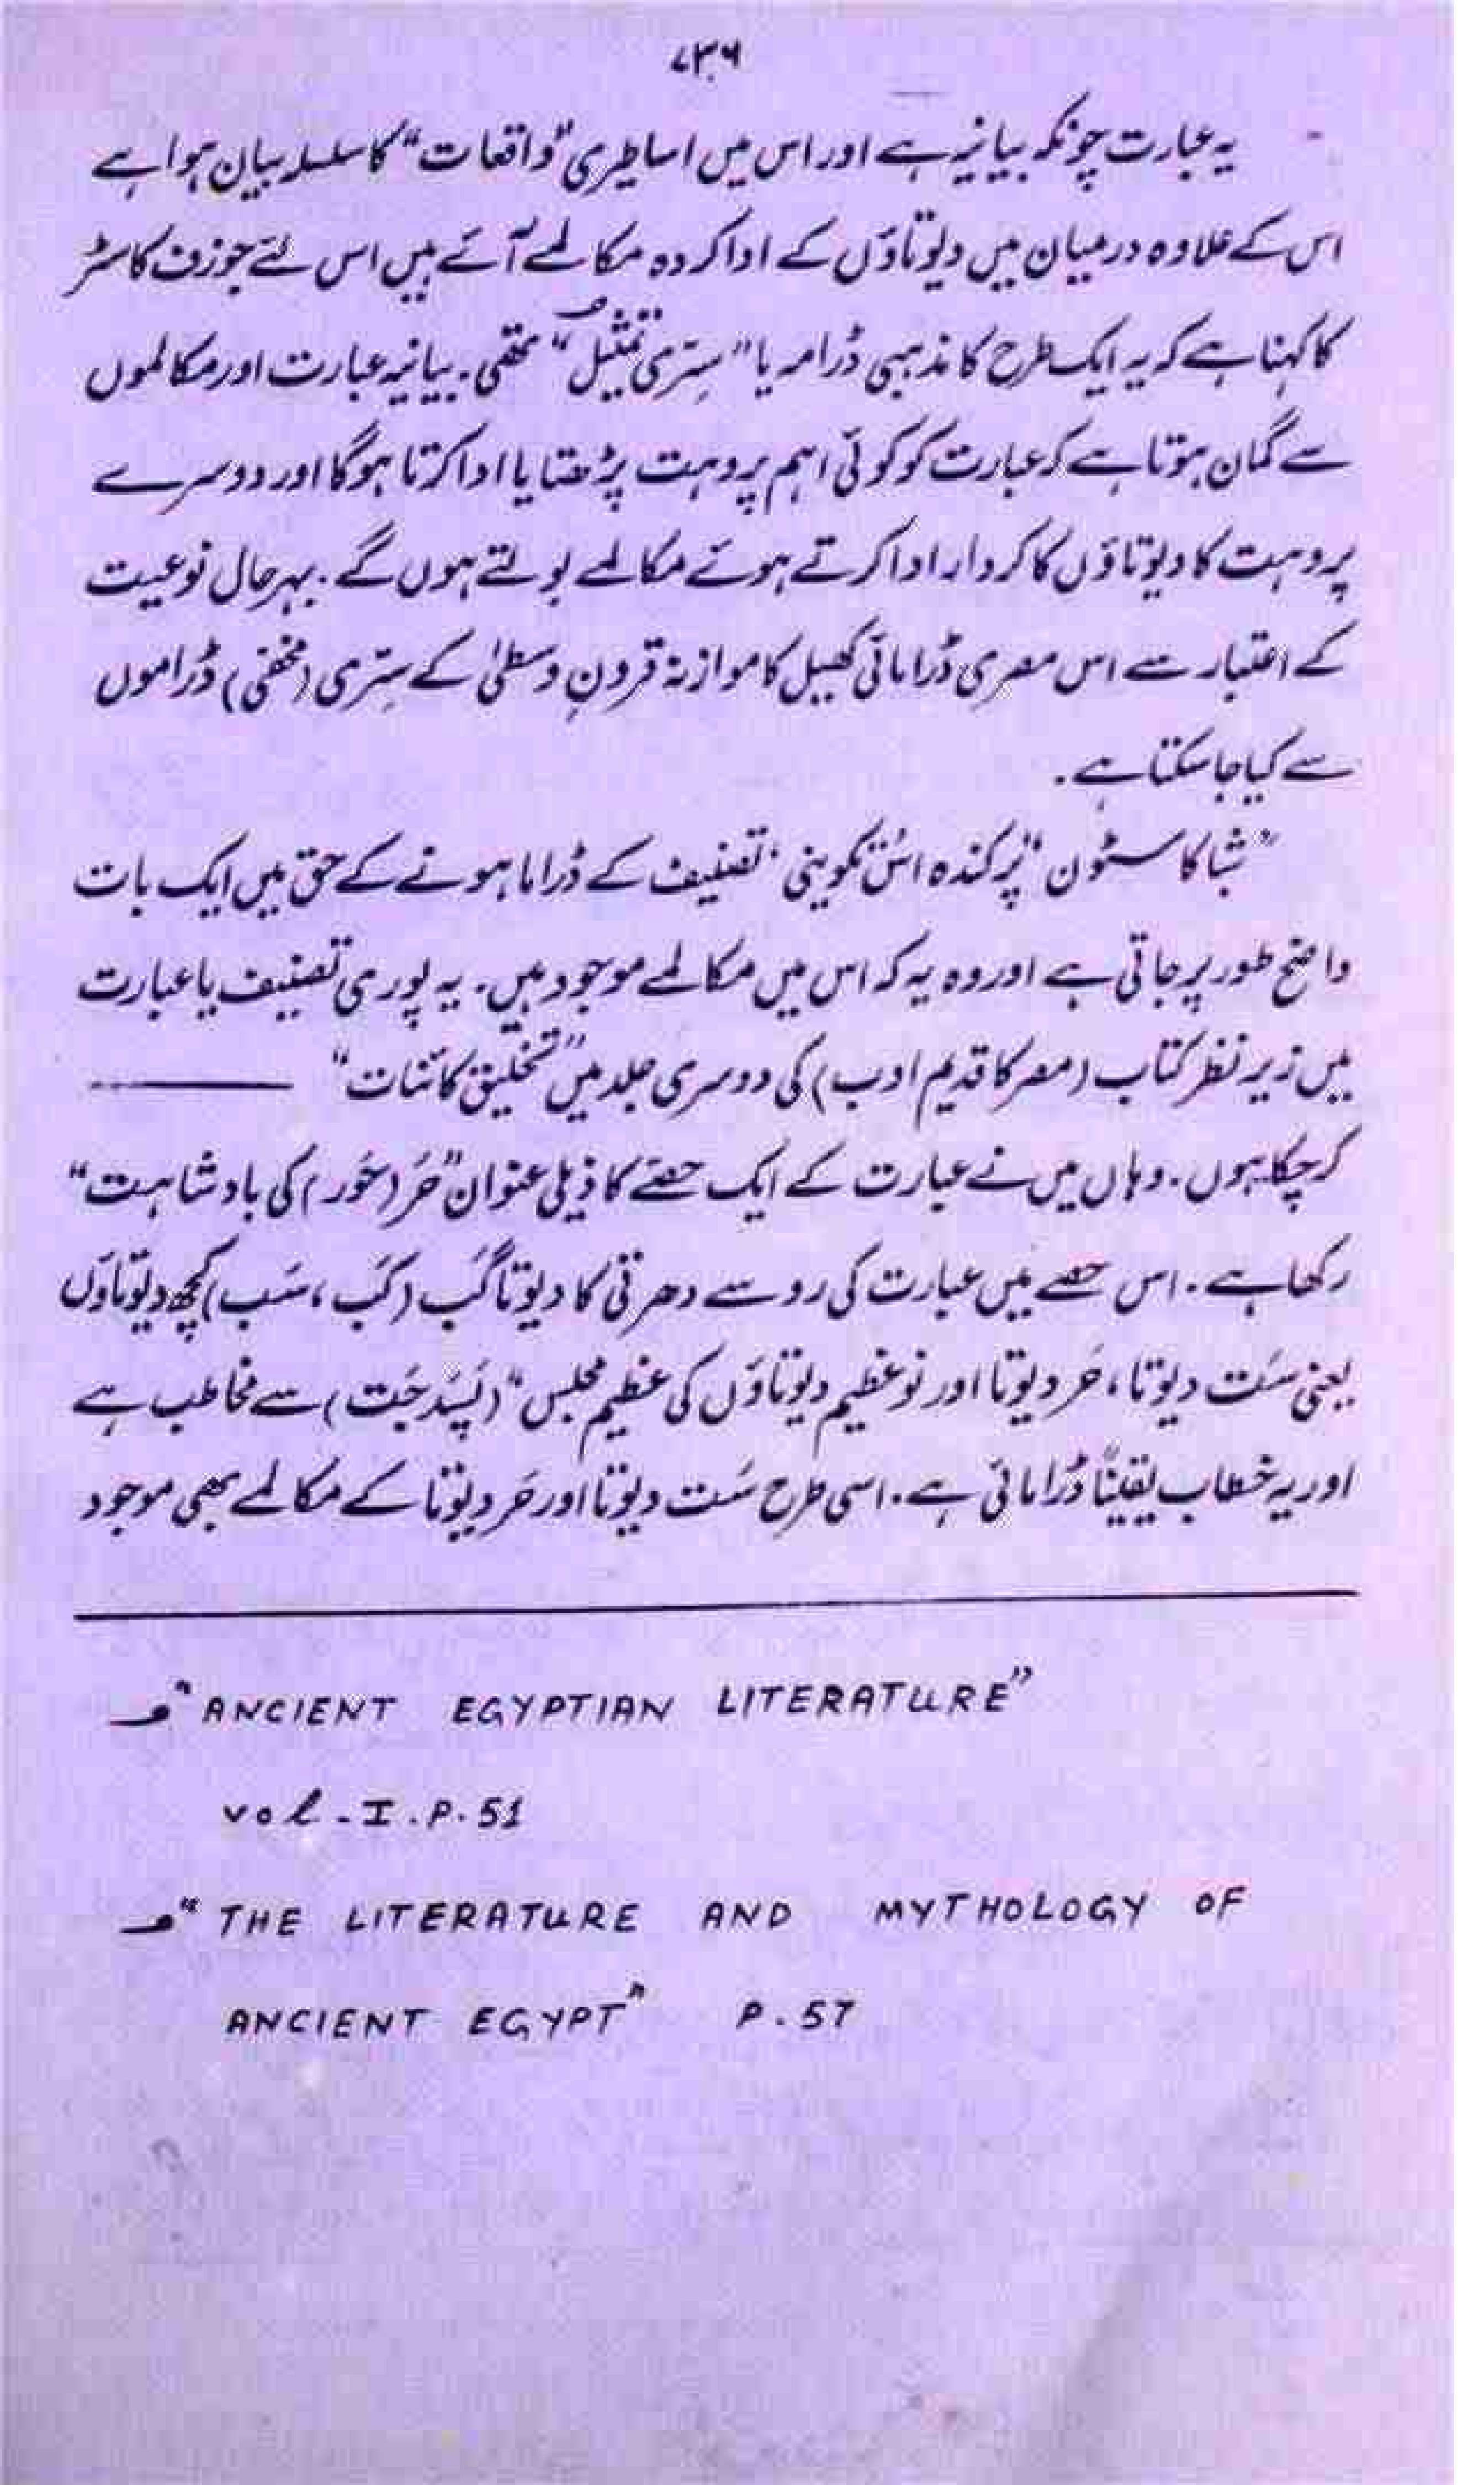 ۷۳۶
یہ عبارت چونکہ بیانیہ ہے اور اس میں اساطیری "واقعات" کا سلسلہ بیان ہوا ہے
اس کے علاوہ درمیان میں دیوتاؤں کے ادا کردہ مکالمے آئے ہیں اس لئے جوزف کاسٹر
کا کہنا ہے کہ یہ ایک طرح کا مذہبی ڈرامہ یا "سِرّی تمثیل" تھی۔ بیانیہ عبارت اور مکالموں
سے گمان ہوتا ہے کہ عبارت کو کوئی اہم پروہت پڑھتا یا ادا کرتا ہوگا اور دوسرے
پروہت کا دیوتاؤں کا کردار ادا کرتے ہوئے مکالمے بولتے ہوں گے۔ بہرحال نوعیت
کے اعتبار سے اس مصری ڈرامائی کھیل کا موازنہ قرونِ وسطیٰ کے سِرّی (مخفی) ڈراموں
سے کیا جا سکتا ہے۔
"شباکا سٹون" پر کندہ اس تکوینی تصنیف کے ڈراما ہونے کے حق میں ایک بات
واضح طور پر جاتی ہے اور وہ یہ کہ اس میں مکالمے موجود ہیں۔ یہ پوری تصنیف یا عبارت
میں زیرِ نظر کتاب (مصر کا قدیم ادب) کی دوسری جلد میں "تخلیق کائنات" ———
کر چکا ہوں۔ وہاں میں نے عبارت کے ایک حصّے کا ذیلی عنوان "حَر (حُور) کی بادشاہت"
رکھا ہے۔ اس حصے میں عبارت کی رو سے دھرتی کا دیوتا گَب (کَب، سَب) کچھ دیوتاؤں
یعنی سَت دیوتا، حَر دیوتا اور نو عظیم دیوتاؤں کی عظیم مجلس" (پَسِدجَت) سے مخاطب ہے
اور یہ خطاب یقیناً ڈرامائی ہے۔ اسی طرح سَت دیوتا اور حَر دیوتا کے مکالمے بھی موجود
"ANCIENT EGYPTIAN LITERATURE"
vol - I . P. 51
"THE LITERATURE AND MYTHOLOGY OF
ANCIENT EGYPT" P. 57